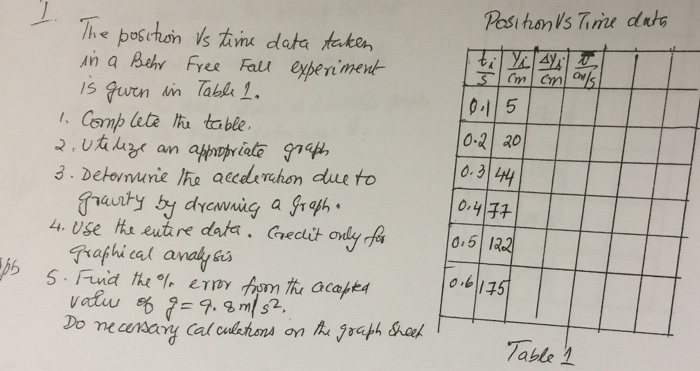 1.
The position Vs time data taken
in a Behr Free Fall experiment
is given in Table 1.
1. Complete the table.
2. Utilize an appropriate graph
3. Determine the acceleration due to
gravity by drawing a graph.
4. Use the entire data. Credit only for
graphical analysis
5. Find the % error from the accepted
value of g = 9.8 m/s².
Do necessary calculations on the graph sheet
Position Vs Time data
ti/s yi/cm Δyi/cm v̄/cm/s
0.1 5
0.2 20
0.3 44
0.4 77
0.5 122
0.6 175
Table 1